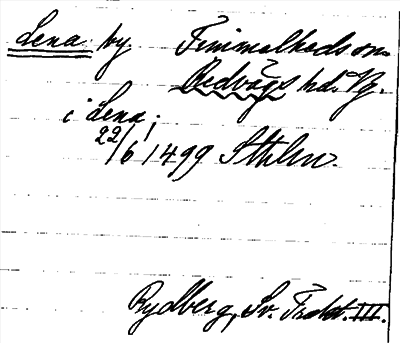 Lena by Finnmalheds sn.
Redvägs hd. Vg.
i Lena;
22/6 1499 Sthlm.
Rydberg, Sv. Trakt. III.